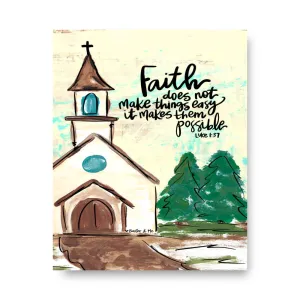 Faith
does not
make things easy
it makes them
possible
Luke 1:37